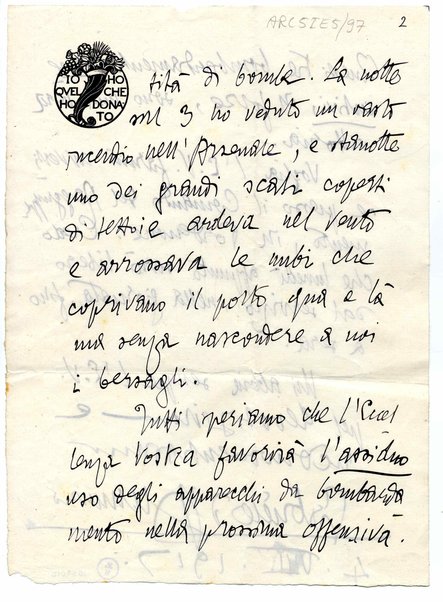 ARC5IE5/97
2
IO HO
QUEL CHE
HO DONA
TO
tità di bombe. La notte
sul 3 ho veduto un vasto
incendio nell'Arsenale, e stanotte
uno dei grandi scali coperti
di tettoie ardeva nel vento
e arrossava le nubi che
coprivano il porto qua e là
ma senza nascondere a noi
i bersagli.
Tutti speriamo che l'Eccel
lenza Vostra favorirà l'assiduo
uso degli apparecchi da bombarda
mento nella prossima offensiva.